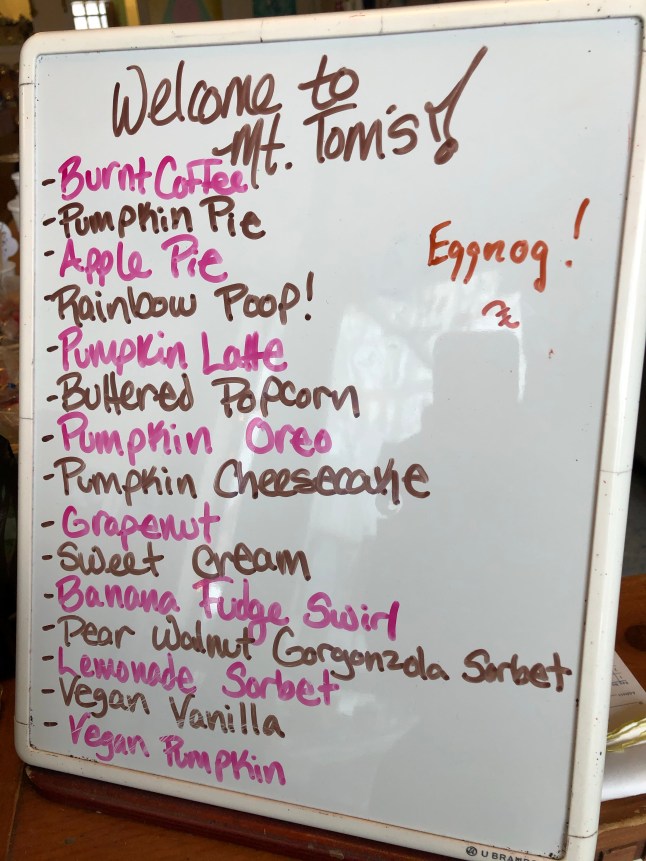 Welcome to
Mt. Tom's!
- Burnt Coffee
- Pumpkin Pie
- Apple Pie
- Rainbow Poop!
- Pumpkin Latte
- Buttered Popcorn
- Pumpkin Oreo
- Pumpkin Cheesecake
- Grapenut
- Sweet Cream
- Banana Fudge Swirl
- Pear Walnut Gorgonzola Sorbet
- Lemonade Sorbet
- Vegan Vanilla
- Vegan Pumpkin
Eggnog!
U BRAND